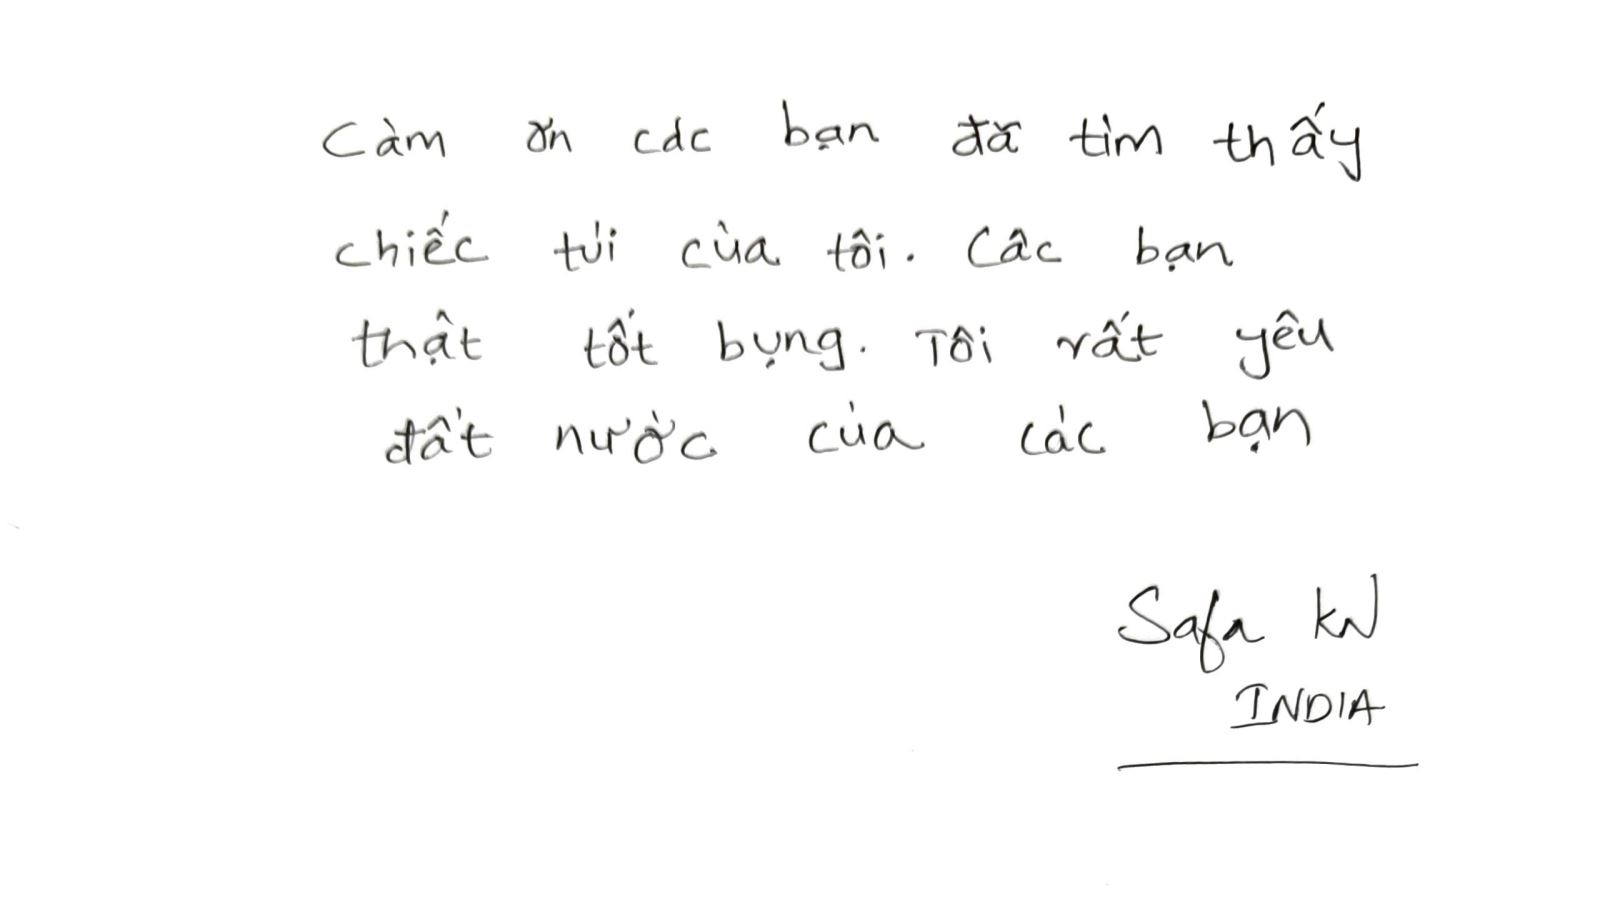 Càm ơn các bạn đã tìm thấy
chiếc túi cùa tôi. Câc bạn
thật tốt bụng. Tôi rất yêu
đất nườc của các bạn
Safa KN
INDIA